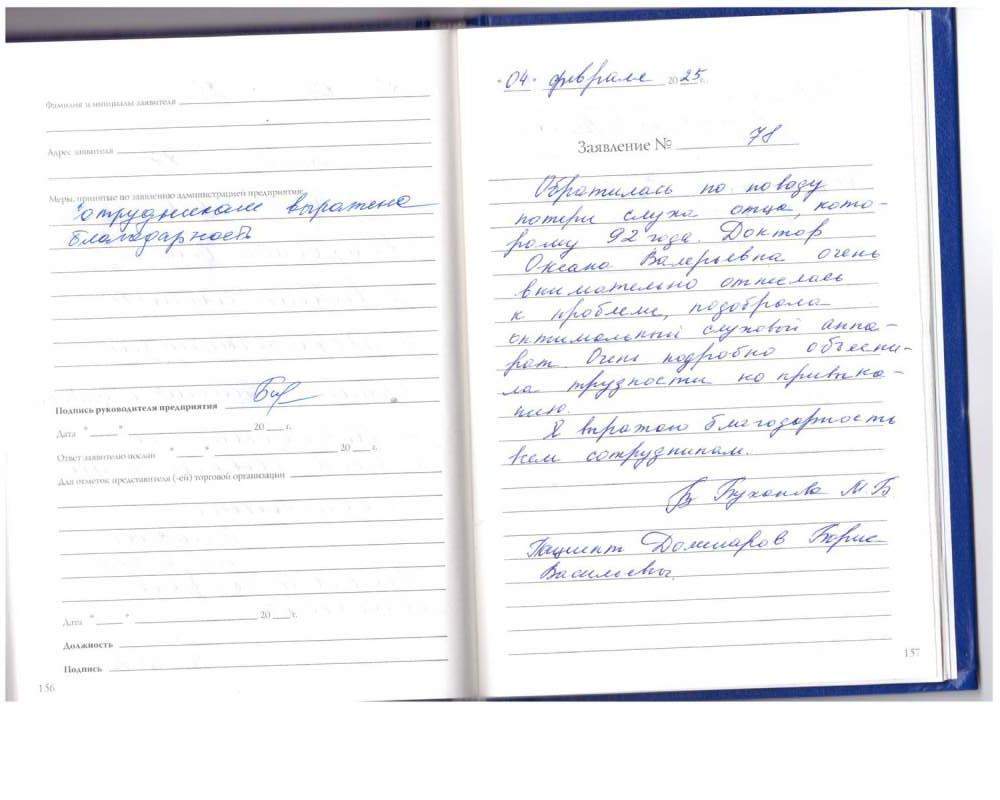 Фамилия и инициалы заявителя
Адрес заявителя
Меры, принятые по заявлению администрацией предприятия:
сотрудникам выражена
благодарность
Подпись руководителя предприятия
Дата " " 20 г.
Ответ заявителю послан " " 20 г.
Для отметок представителя (-ей) торговой организации
Дата " " 20 г.
Должность
Подпись
156
"04" февраля 2025 г.
Заявление № 78
Обратилась по поводу
потери слуха отца, кото-
рому 92 года. Доктор
Оксана Валерьевна очень
внимательно отнеслась
к проблеме, подобрала
оптимальный слуховой аппа-
рат. Очень подробно объясни-
ла трудности по привыка-
нию.
Я выражаю благодарность
всем сотрудникам.
М.Б.
Пациент Борис
Васильевич.
157